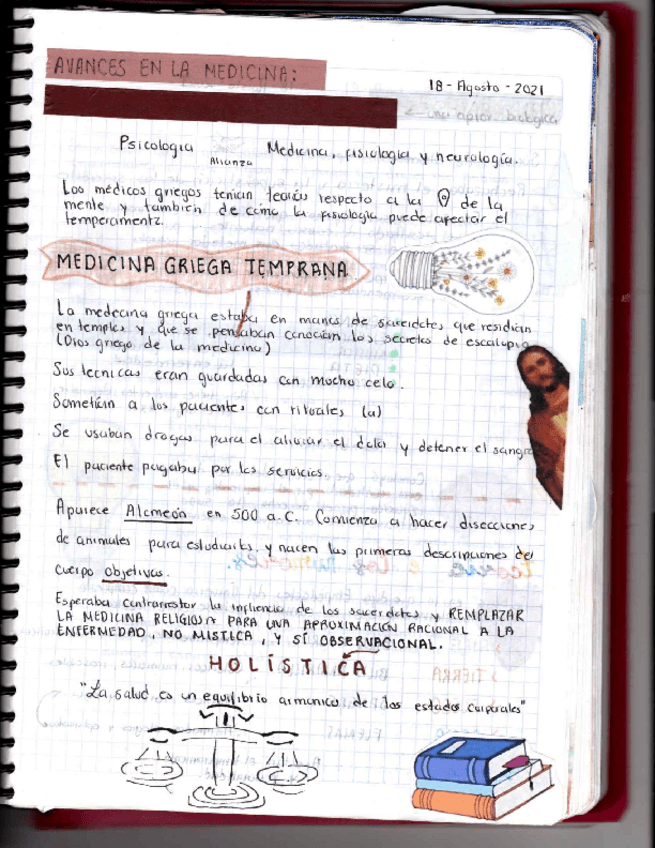 AVANCES EN LA MEDICINA:
18 - Agosto - 2021
Psicologia Alianza Medicina, fisiologia y neurologia.
Los médicos griegos tenian teorias respecto a la de la
mente y tambien de cómo la fisiologia puede afectar el
temperamento.
MEDICINA GRIEGA TEMPRANA
La medecina griega estaba en manos de sacerdotes que residian
en temples y que se pensaban conocian los secretos de escalupio
(Dios griego de la medicina)
Sus tecnicas eran guardadas con mucho celo.
Sometian a los pacientes con rituales (a)
Se usaban drogas para el aliviar el dolor y detener el sangre
El paciente pagaba por los servicios.
Aparece Alcmeón en 500 a.C. Comienza a hacer disecciones
de animales para estudiarlos y nacen las primeras descripciones del
cuerpo objetivas.
Esperaba contrarrestar la influencia de los sacerdotes y REMPLAZAR
LA MEDICINA RELIGIOSA PARA UNA APROXIMACIÓN RACIONAL A LA
ENFERMEDAD, NO MISTICA, Y SÍ OBSERVACIONAL.
HOLÍSTICA
"La salud es un equilibrio armonico de los estados corporales"